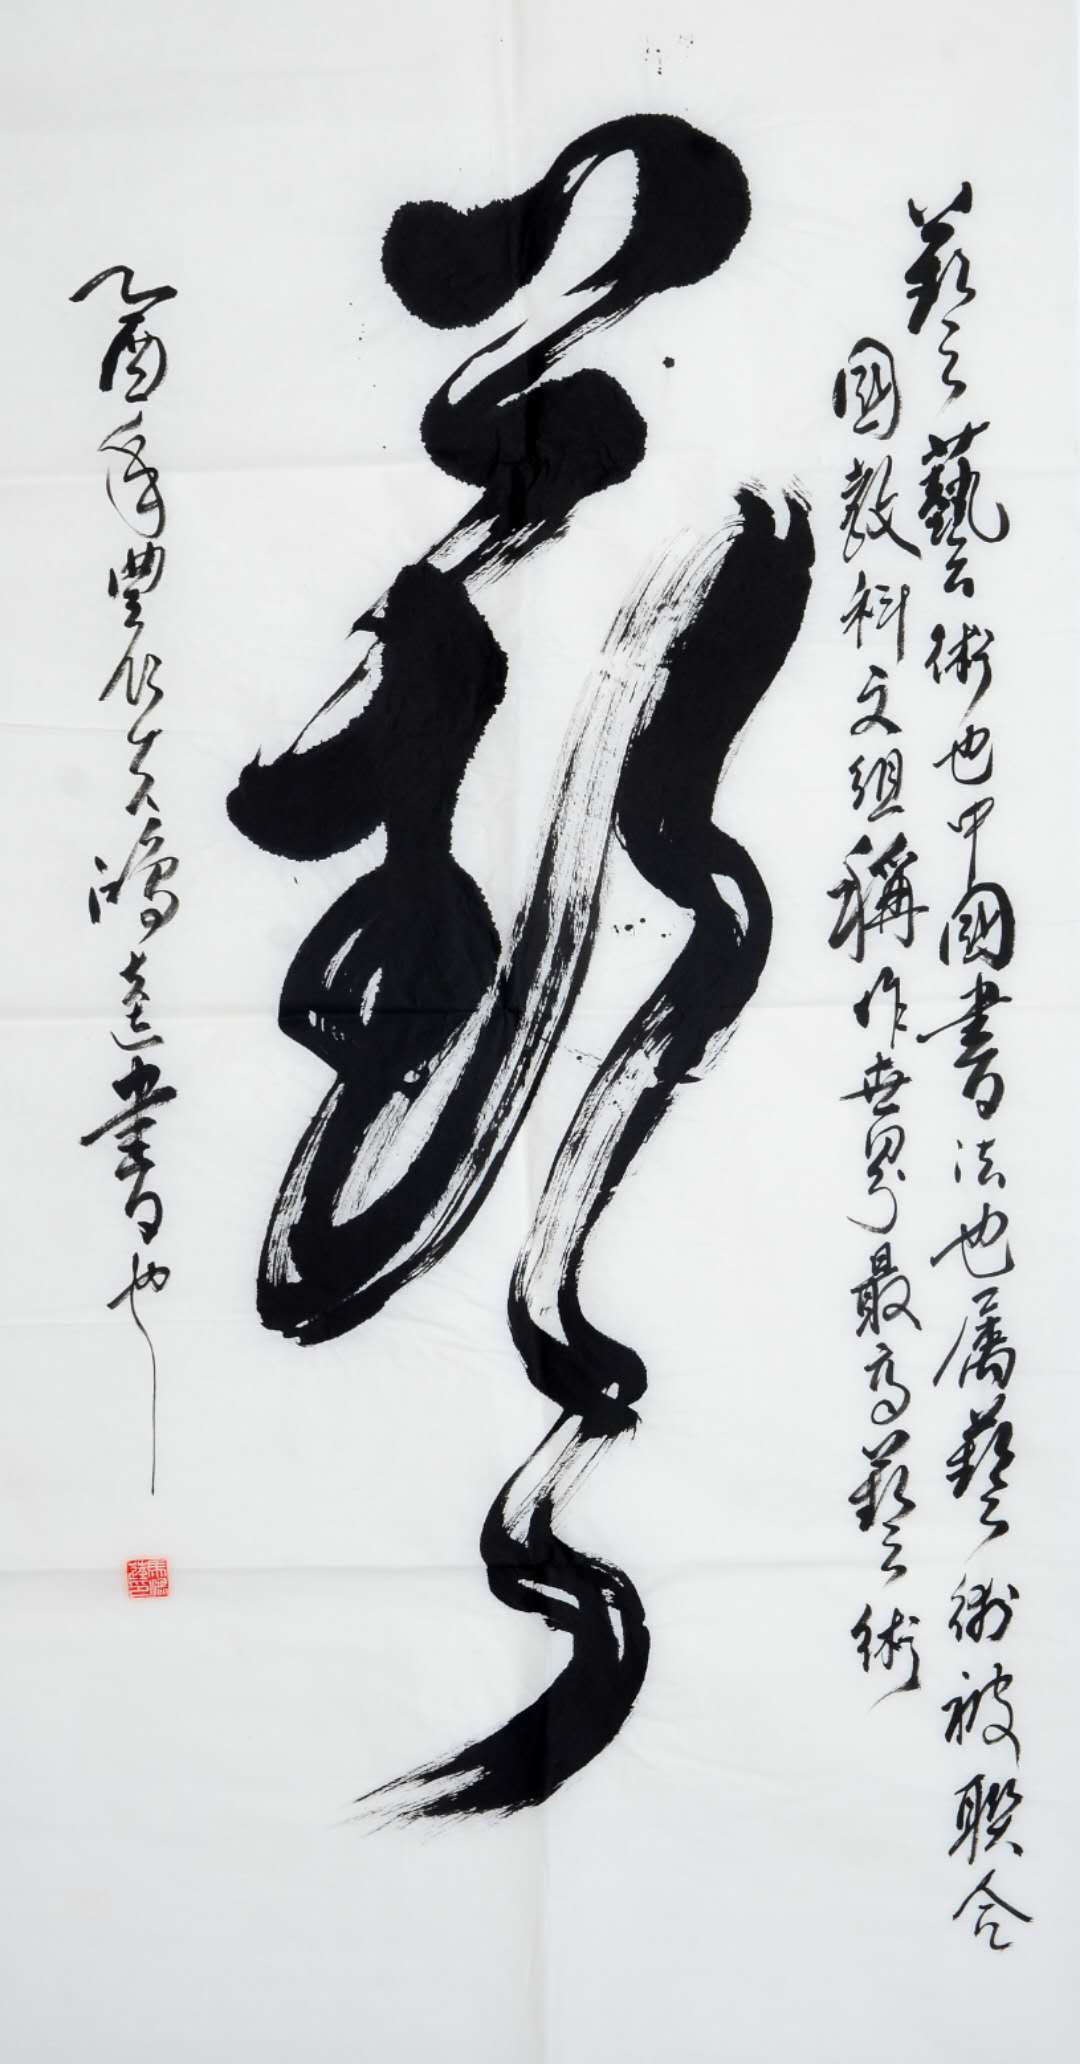 藝藝術也中國書法也屬藝術被聯合
國教科文組稱作世界最高藝術
藝
乙酉年豐仁友鴻達書也